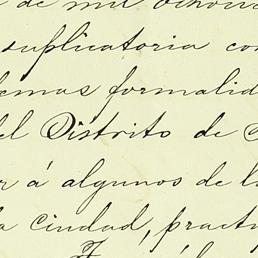 de mil ochocie
suplicatoria con
emas formalid
el Distrito de
r á algunos de l
a ciudad, pract